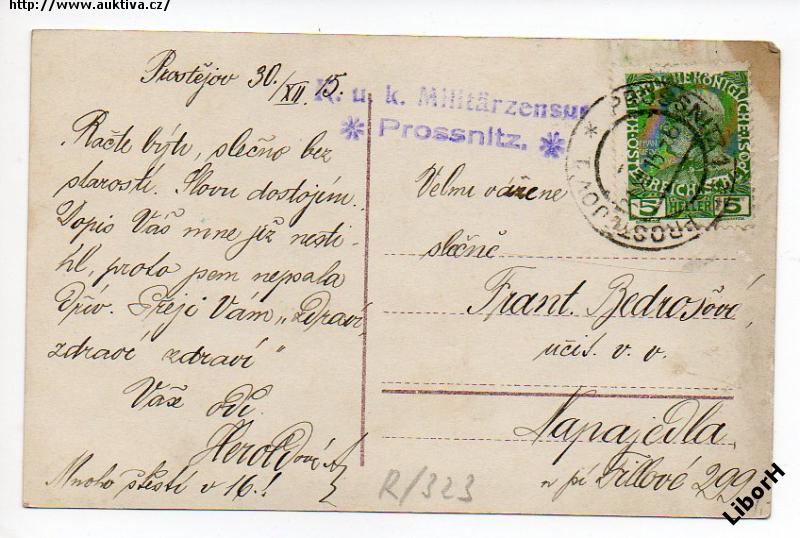 http://www.auktiva.cz/
Prostějov 30./XII 15.
K. u. k. Militärzensur
* Prossnitz. *
Račte býti, slečno bez
starosti. Slovu dostojím.
Dopis Váš mne již nesti-
hl, proto jsem nepsala
dřív. Přeji Vám „zdraví,
zdraví zdraví"
Váše odd.
Heroldová
Mnoho štěstí v 16.!
Velmi vážené
slečně
Frant. Bedrošové,
učit. v. v.
Napajedla
u pí Fillové 299
R/323
PROSSNITZ
PROSTĚJOV
5 HELLER 5
LiborH